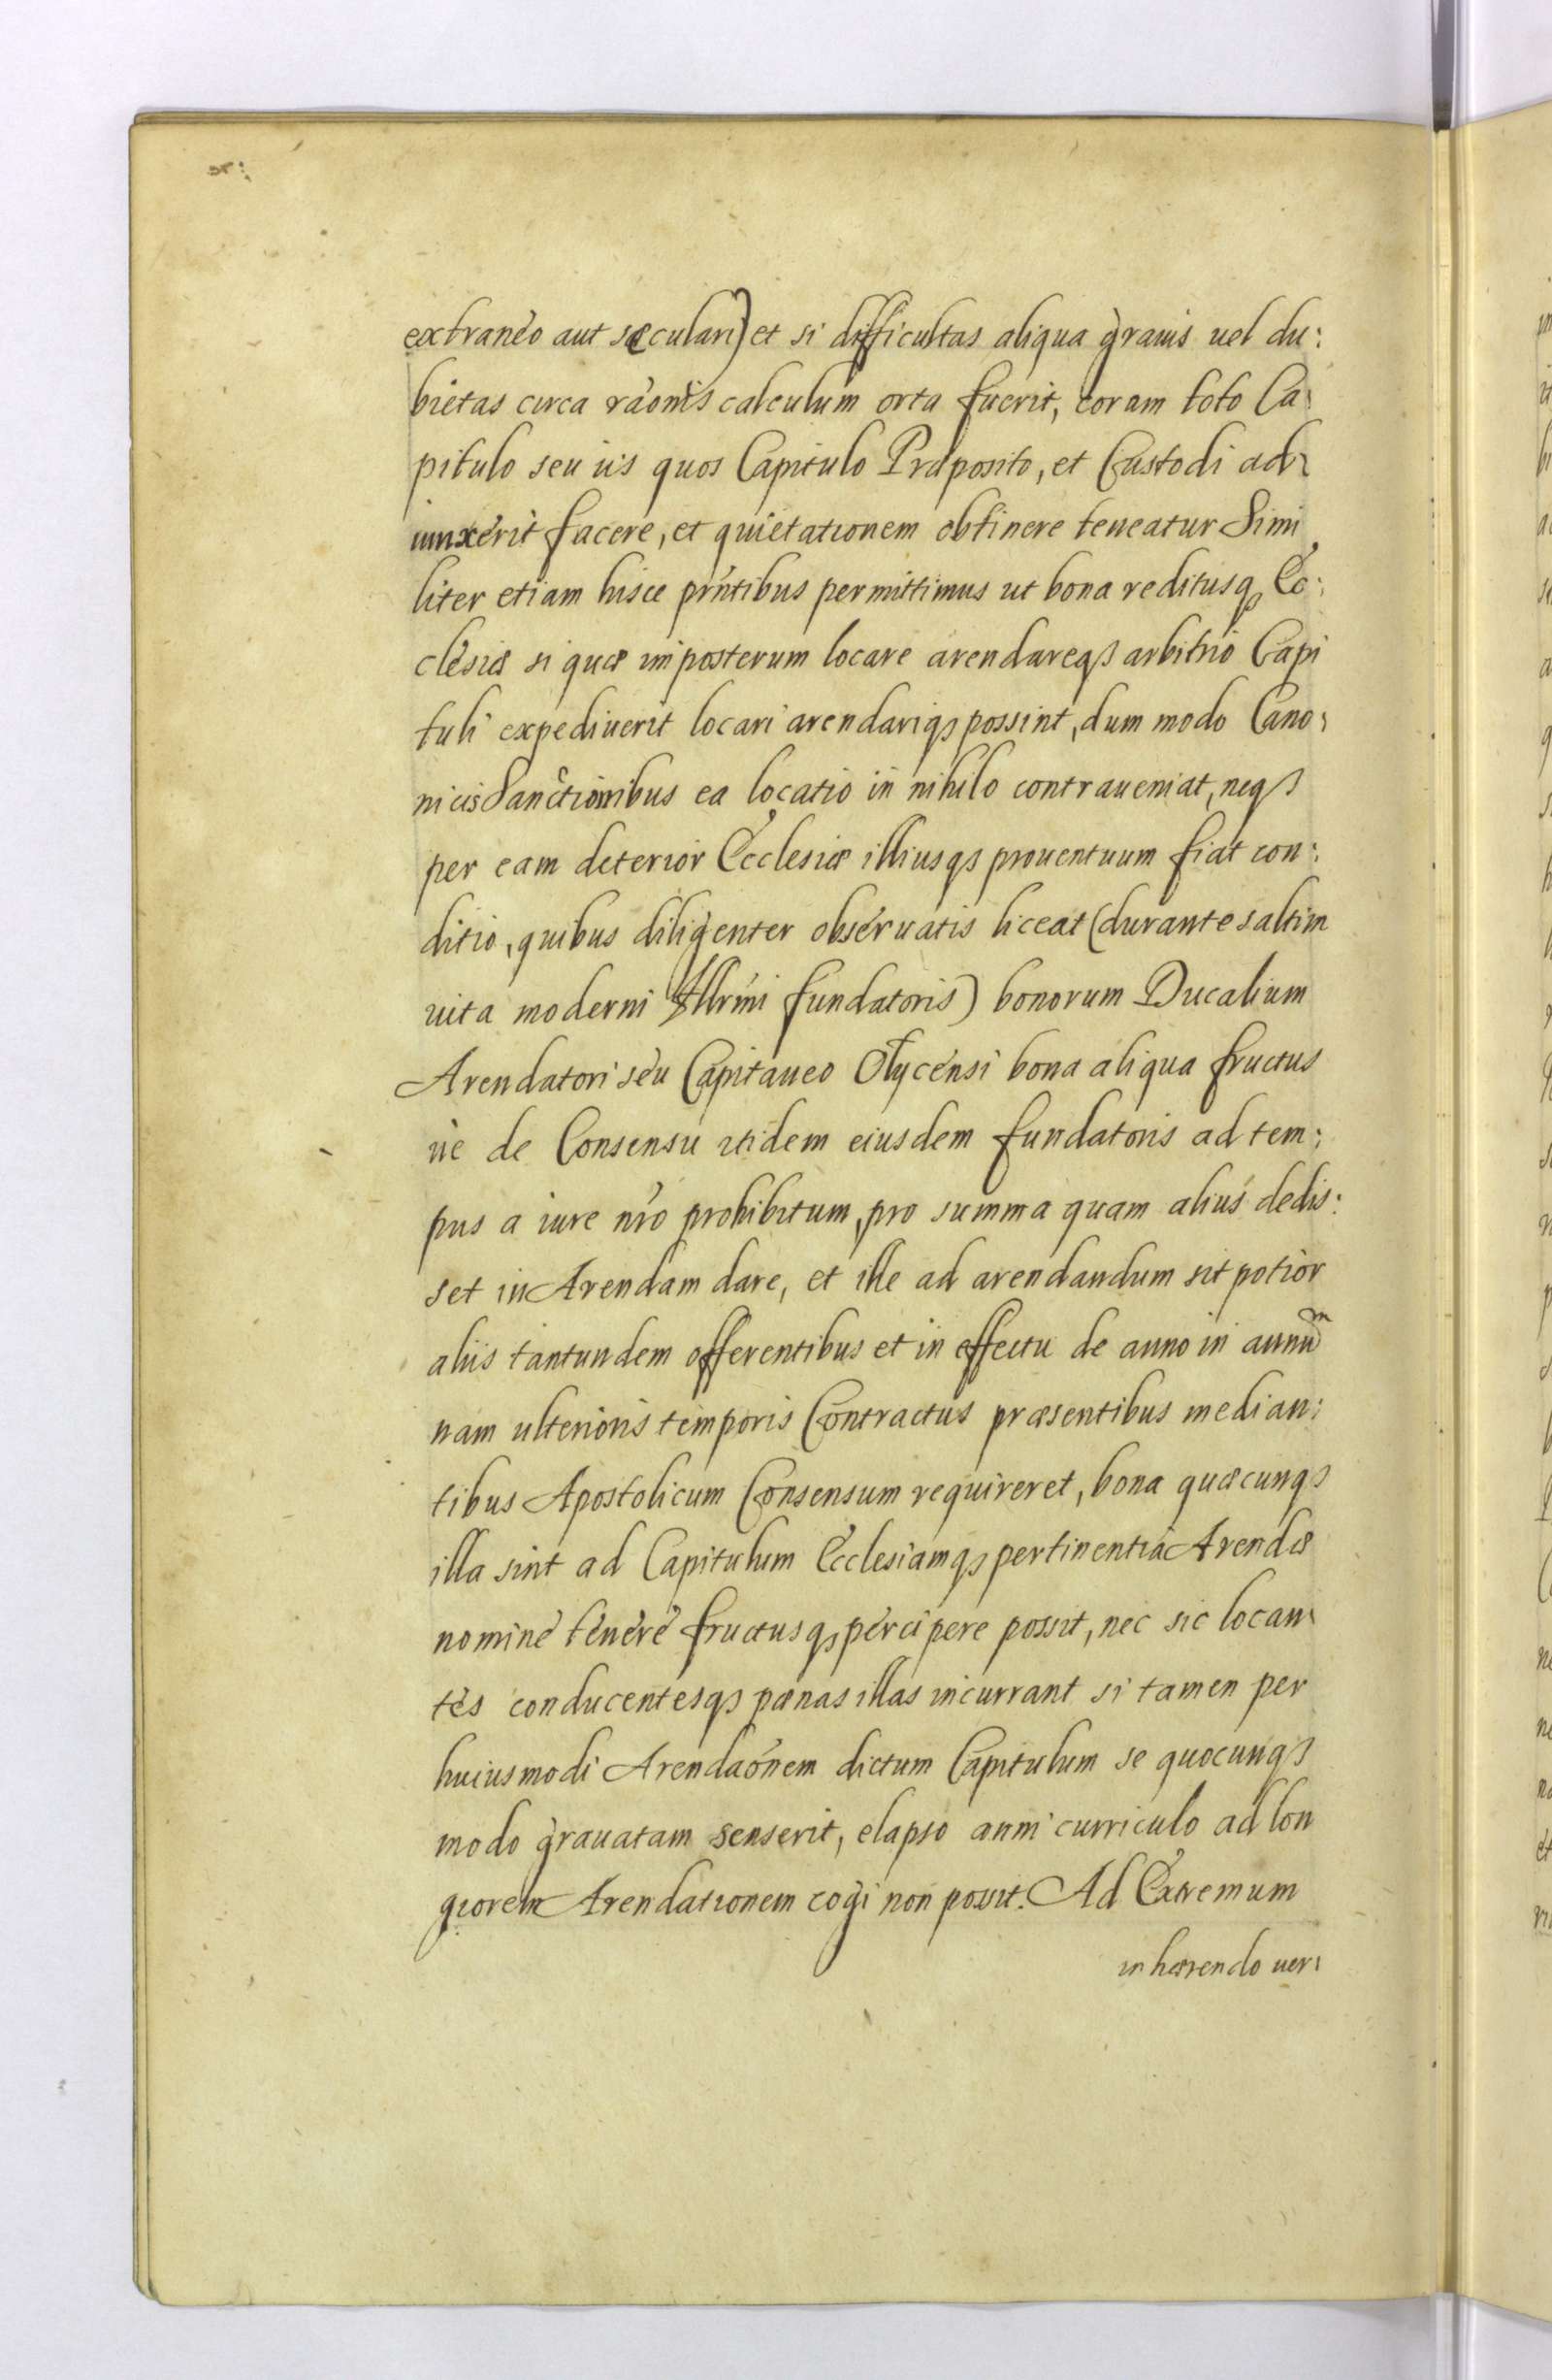 extraneo aut sæculari) et si difficultas aliqua grauis uel du:
bietas circa raõnis calculum orta fuerit, coram toto Ca:
pitulo seu iis quos Capitulo Præposito, et Custodi ad:
iunxerit facere, et quietationem obtinere teneatur Simi
liter etiam hisce pr̃ntibus permittimus ut bona reditusq₃ Ec:
clesiæ si quæ imposterum locare arendareq₃ arbitrio Capi
tuli expediuerit locari arendariq₃ possint, dum modo Cano:
nicis Sanctionibus ea locatio in nihilo contraueniat, neq₃
per eam deterior Ecclesiæ illiusq₃ prouentuum fiat con:
ditio, quibus diligenter obseruatis liceat (durante saltim
uita moderni Illr̃mi fundatoris) bonorum Ducalium
Arendatori seu Capitaneo Olycensi bona aliqua fructus
ue de Consensu itidem eiusdem fundatoris ad tem:
pus a iure nr̃o prohibitum, pro summa quam alius dedis:
set in Arendam dare, et ille ad arendandum sit potior
aliis tantundem offerentibus et in effectu de anno in annum
nam ulterioris temporis Contractus præsentibus median:
tibus Apostolicum Consensum requireret, bona quæcunq₃
illa sint ad Capitulum Ecclesiamq₃ pertinentia Arendæ
nomine tenere fructusq₃ percipere possit, nec sic locan:
tes conducentesq₃ pœnas illas incurrant si tamen per
huiusmodi Arendaõnem dictum Capitulum se quocunq₃
modo grauatam senserit, elapso anni curriculo ad lon
giorem Arendationem cogi non possit. Ad Extremum
inhærendo uer: